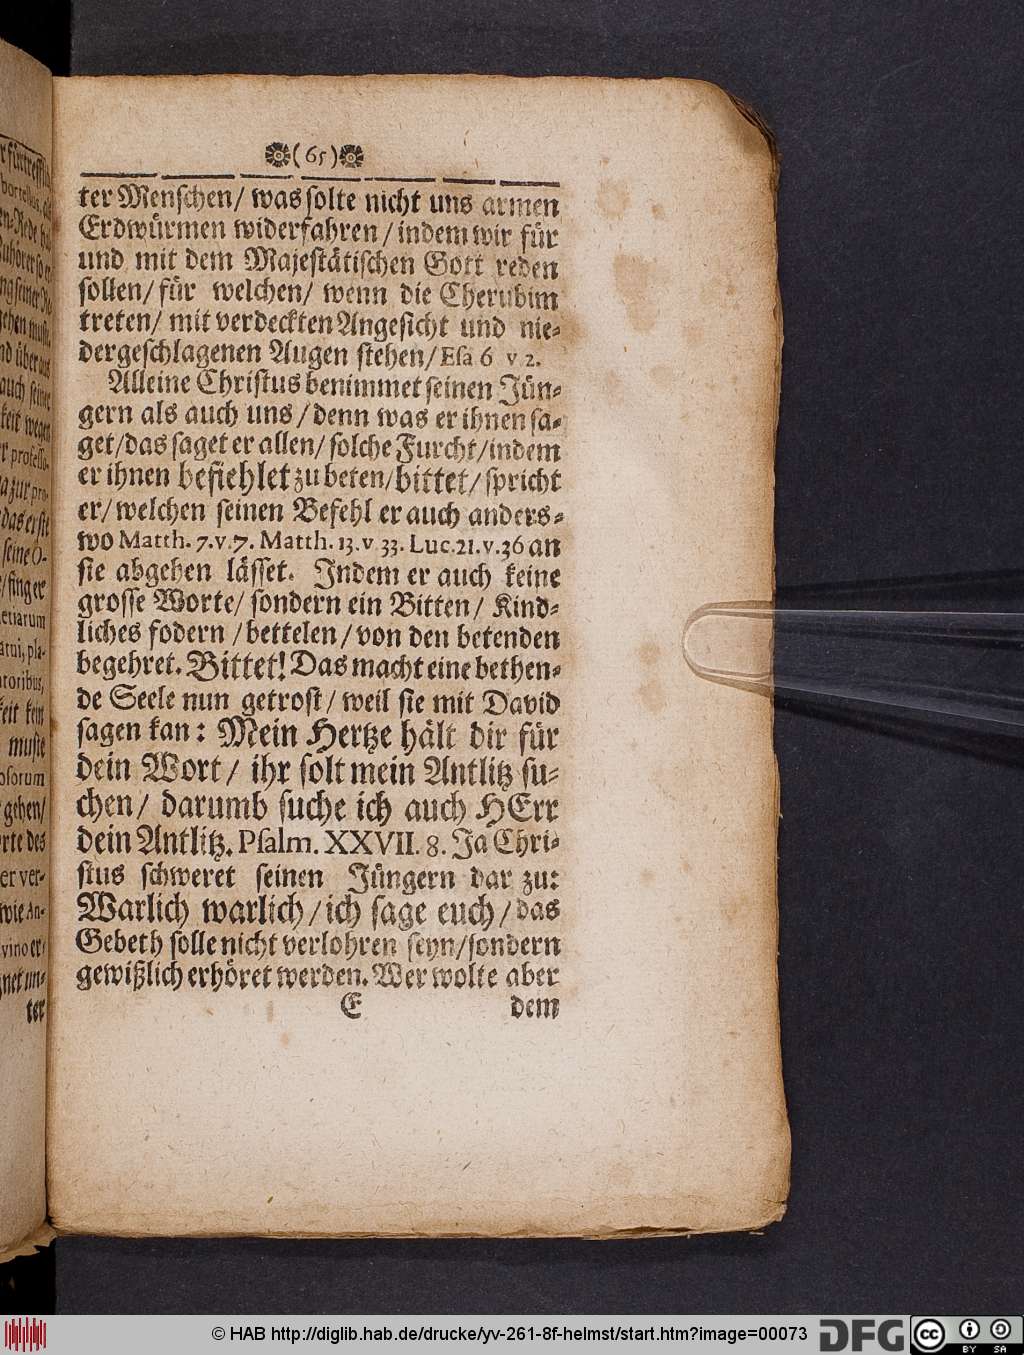 (65)
ter Menschen/ was solte nicht uns armen
Erdwürmen widerfahren/ indem wir für
und mit dem Majestätischen Gott reden
sollen/ für welchen/ wenn die Cherubim
treten/ mit verdeckten Angesicht und nie-
dergeschlagenen Augen stehen/ Esa 6 v 2.
Alleine Christus benimmet seinen Jün-
gern als auch uns/ denn was er ihnen sa-
get/ das saget er allen/ solche Furcht/ indem
er ihnen befiehlet zu beten/ bittet/ spricht
er/ welchen seinen Befehl er auch anders-
wo Matth. 7. v. 7. Matth. 13. v 33. Luc. 21. v. 36 an
sie abgehen lässet. Indem er auch keine
grosse Worte/ sondern ein Bitten/ Kind-
liches fodern/ bettelen/ von den betenden
begehret. Bittet! Das macht eine bethen-
de Seele nun getrost/ weil sie mit David
sagen kan: Mein Hertze hält dir für
dein Wort/ ihr solt mein Antlitz su-
chen/ darumb suche ich auch HErr
dein Antlitz. Psalm. XXVII. 8. Ja Chri-
stus schweret seinen Jüngern dar zu:
Warlich warlich/ ich sage euch/ das
Gebeth solle nicht verlohren seyn/ sondern
gewißlich erhöret werden. Wer wolte aber
E dem
© HAB http://diglib.hab.de/drucke/yv-261-8f-helmst/start.htm?image=00073
DFG
cc BY SA